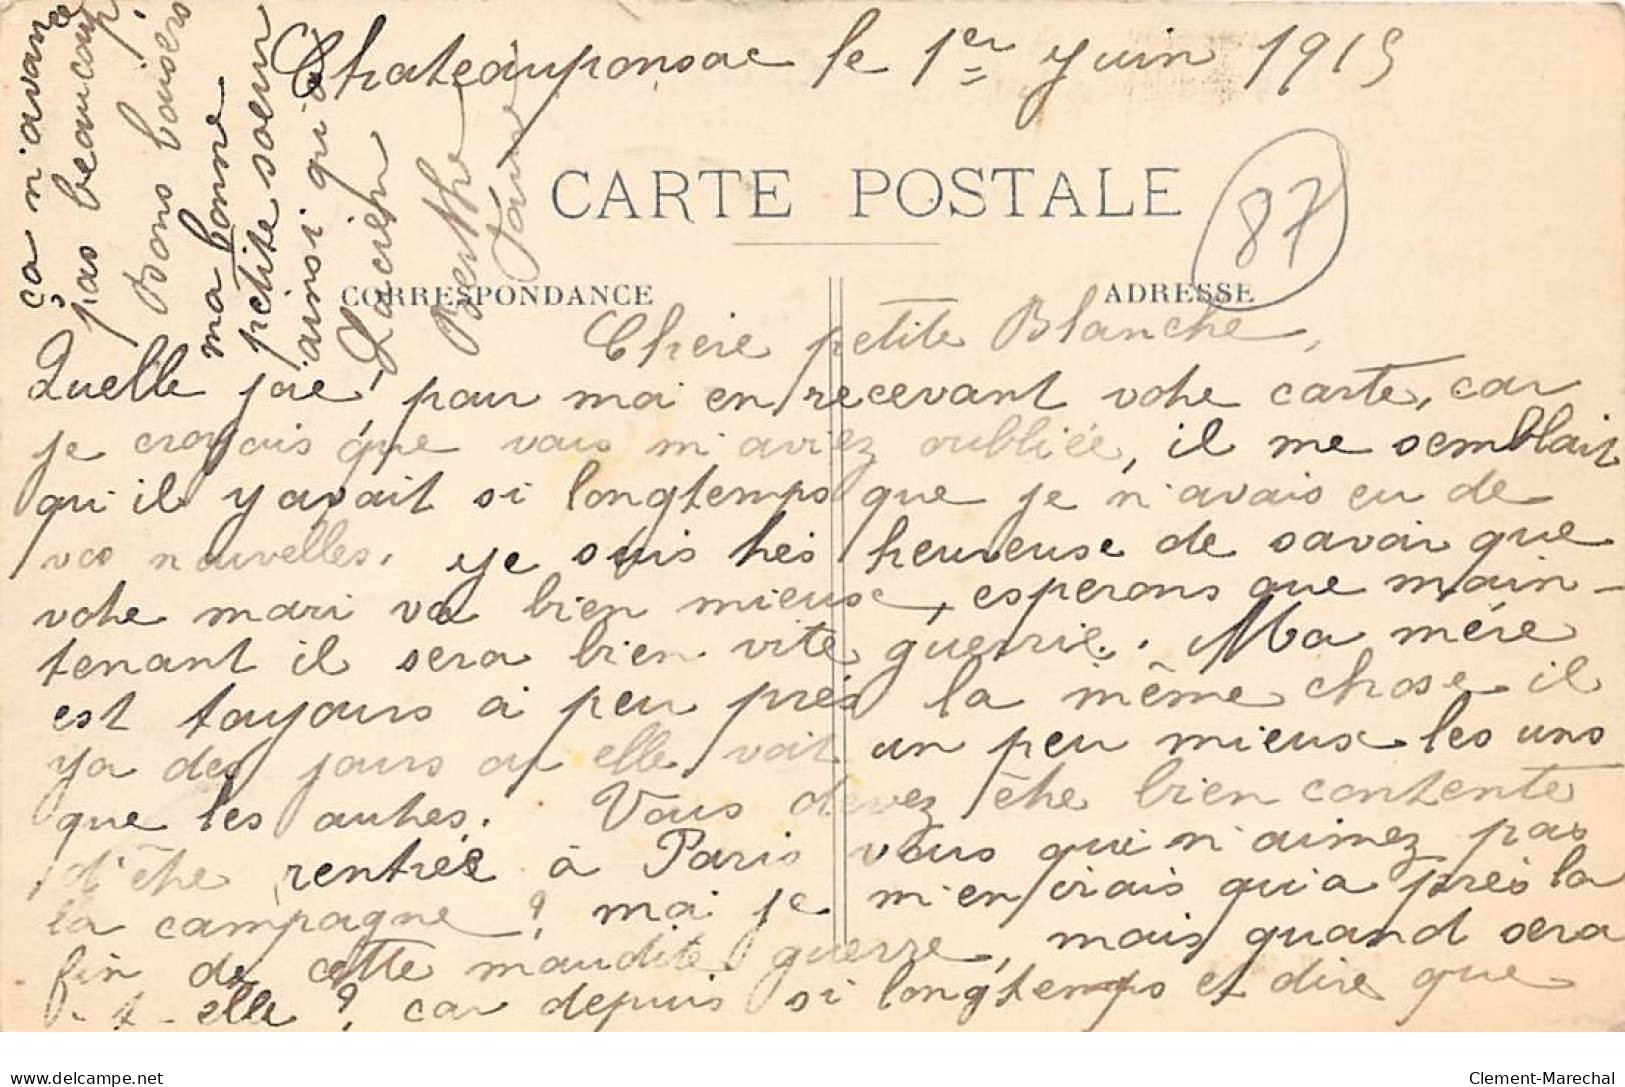 Chateauponsac le 1er juin 1915
CARTE POSTALE
87
CORRESPONDANCE
ADRESSE
Chère petite Blanche,
Quelle joie! pour moi en recevant votre carte, car
je croyais que vous m'aviez oubliée, il me semblait
qu'il y avait si longtemps que je n'avais eu de
vos nouvelles. Je suis très heureuse de savoir que
votre mari va bien mieux, esperons que main-
tenant il sera bien vite guerrie. Ma mère
est toujours à peu près la même chose il
ya des jours ou elle voit un peu mieux les uns
que les autres. Vous devez être bien contente
d'être rentrée à Paris vous qui n'aimez pas
la campagne? moi je m'en irais qu'a près la
fin de cette maudite guerre, mais quand sera
-t-elle? car depuis si longtemps et dire que
ça n'avance
pas beaucoup
Bons baisers
ma bonne
petite soeur
ainsi qu'à
Lucien
Berthe
delcampe.net
Clement-Marechal